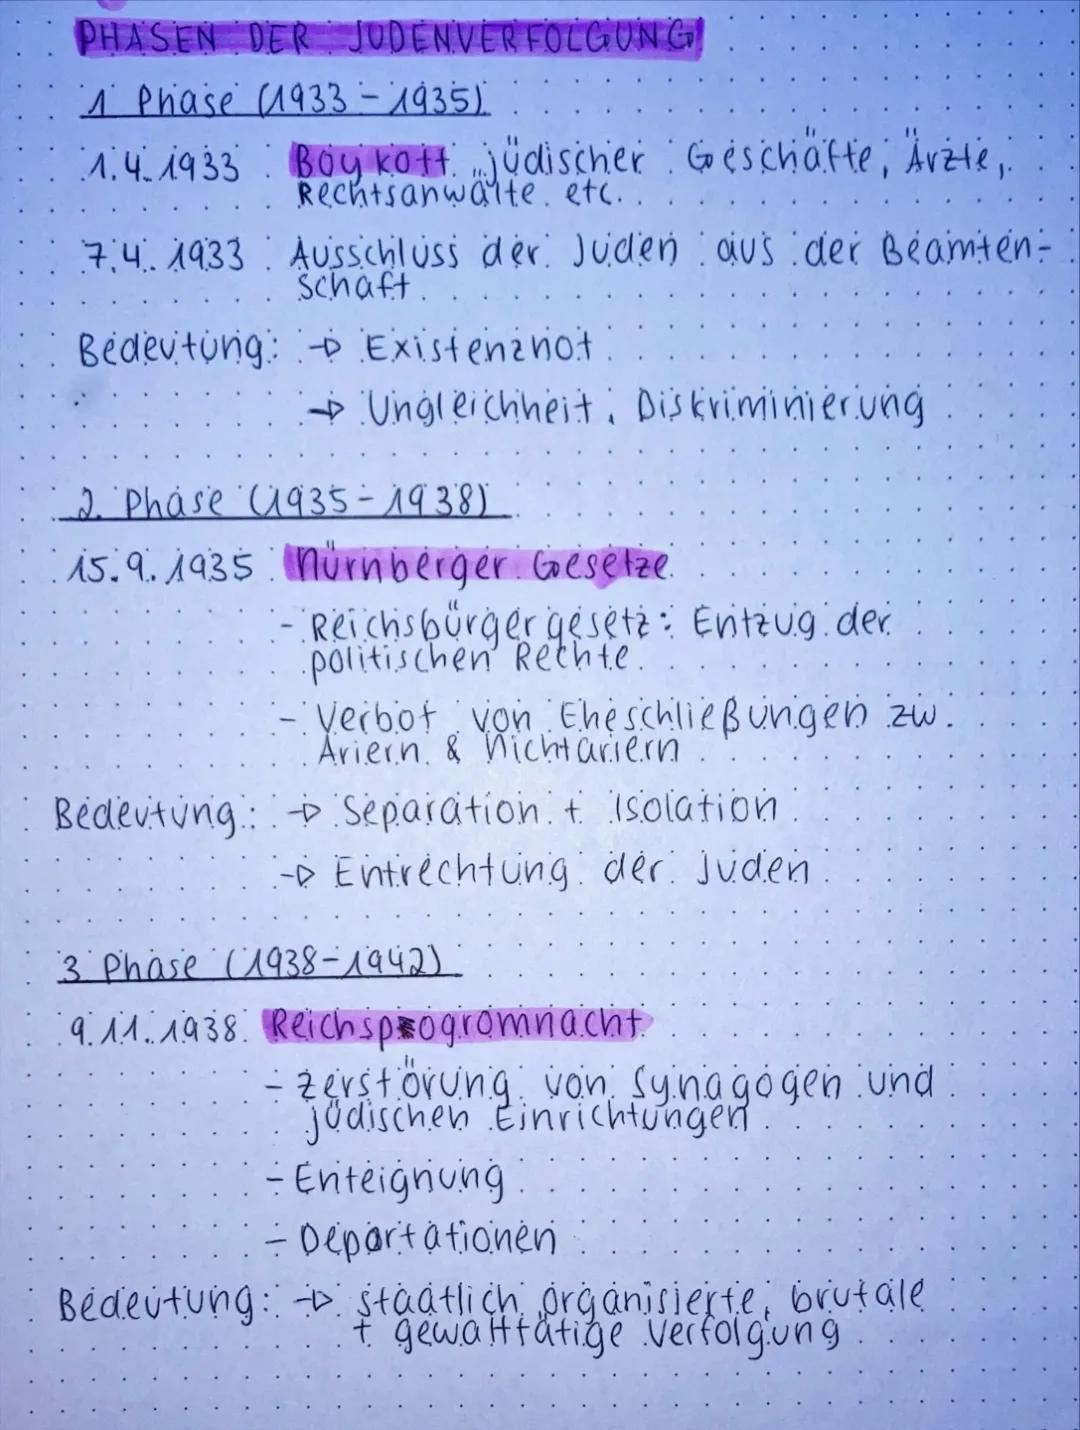 PHASEN DER JUDENVERFOLGUNG
1 Phase (1933-1935)
1.4.1933 Boykott jüdischer Geschäfte, Ärzte,
Rechtsanwälte etc.
7.4.1933 Ausschluss der Juden aus der Beamten-
schaft
Bedeutung: → Existenznot
→ Ungleichheit, Diskriminierung
2. Phase (1935-1938)
15.9.1935 Nürnberger Gesetze
- Reichsbürgergesetz: Entzug der
politischen Rechte
- Verbot von Eheschließungen zw.
Ariern & Nichtariern
Bedeutung: → Separation + Isolation
→ Entrechtung der Juden
3 Phase (1938-1942)
9.11.1938 Reichspogromnacht
- Zerstörung von Synagogen und
jüdischen Einrichtungen
- Enteignung
- Deportationen
Bedeutung: → staatlich organisierte, brutale
+ gewalttätige Verfolgung